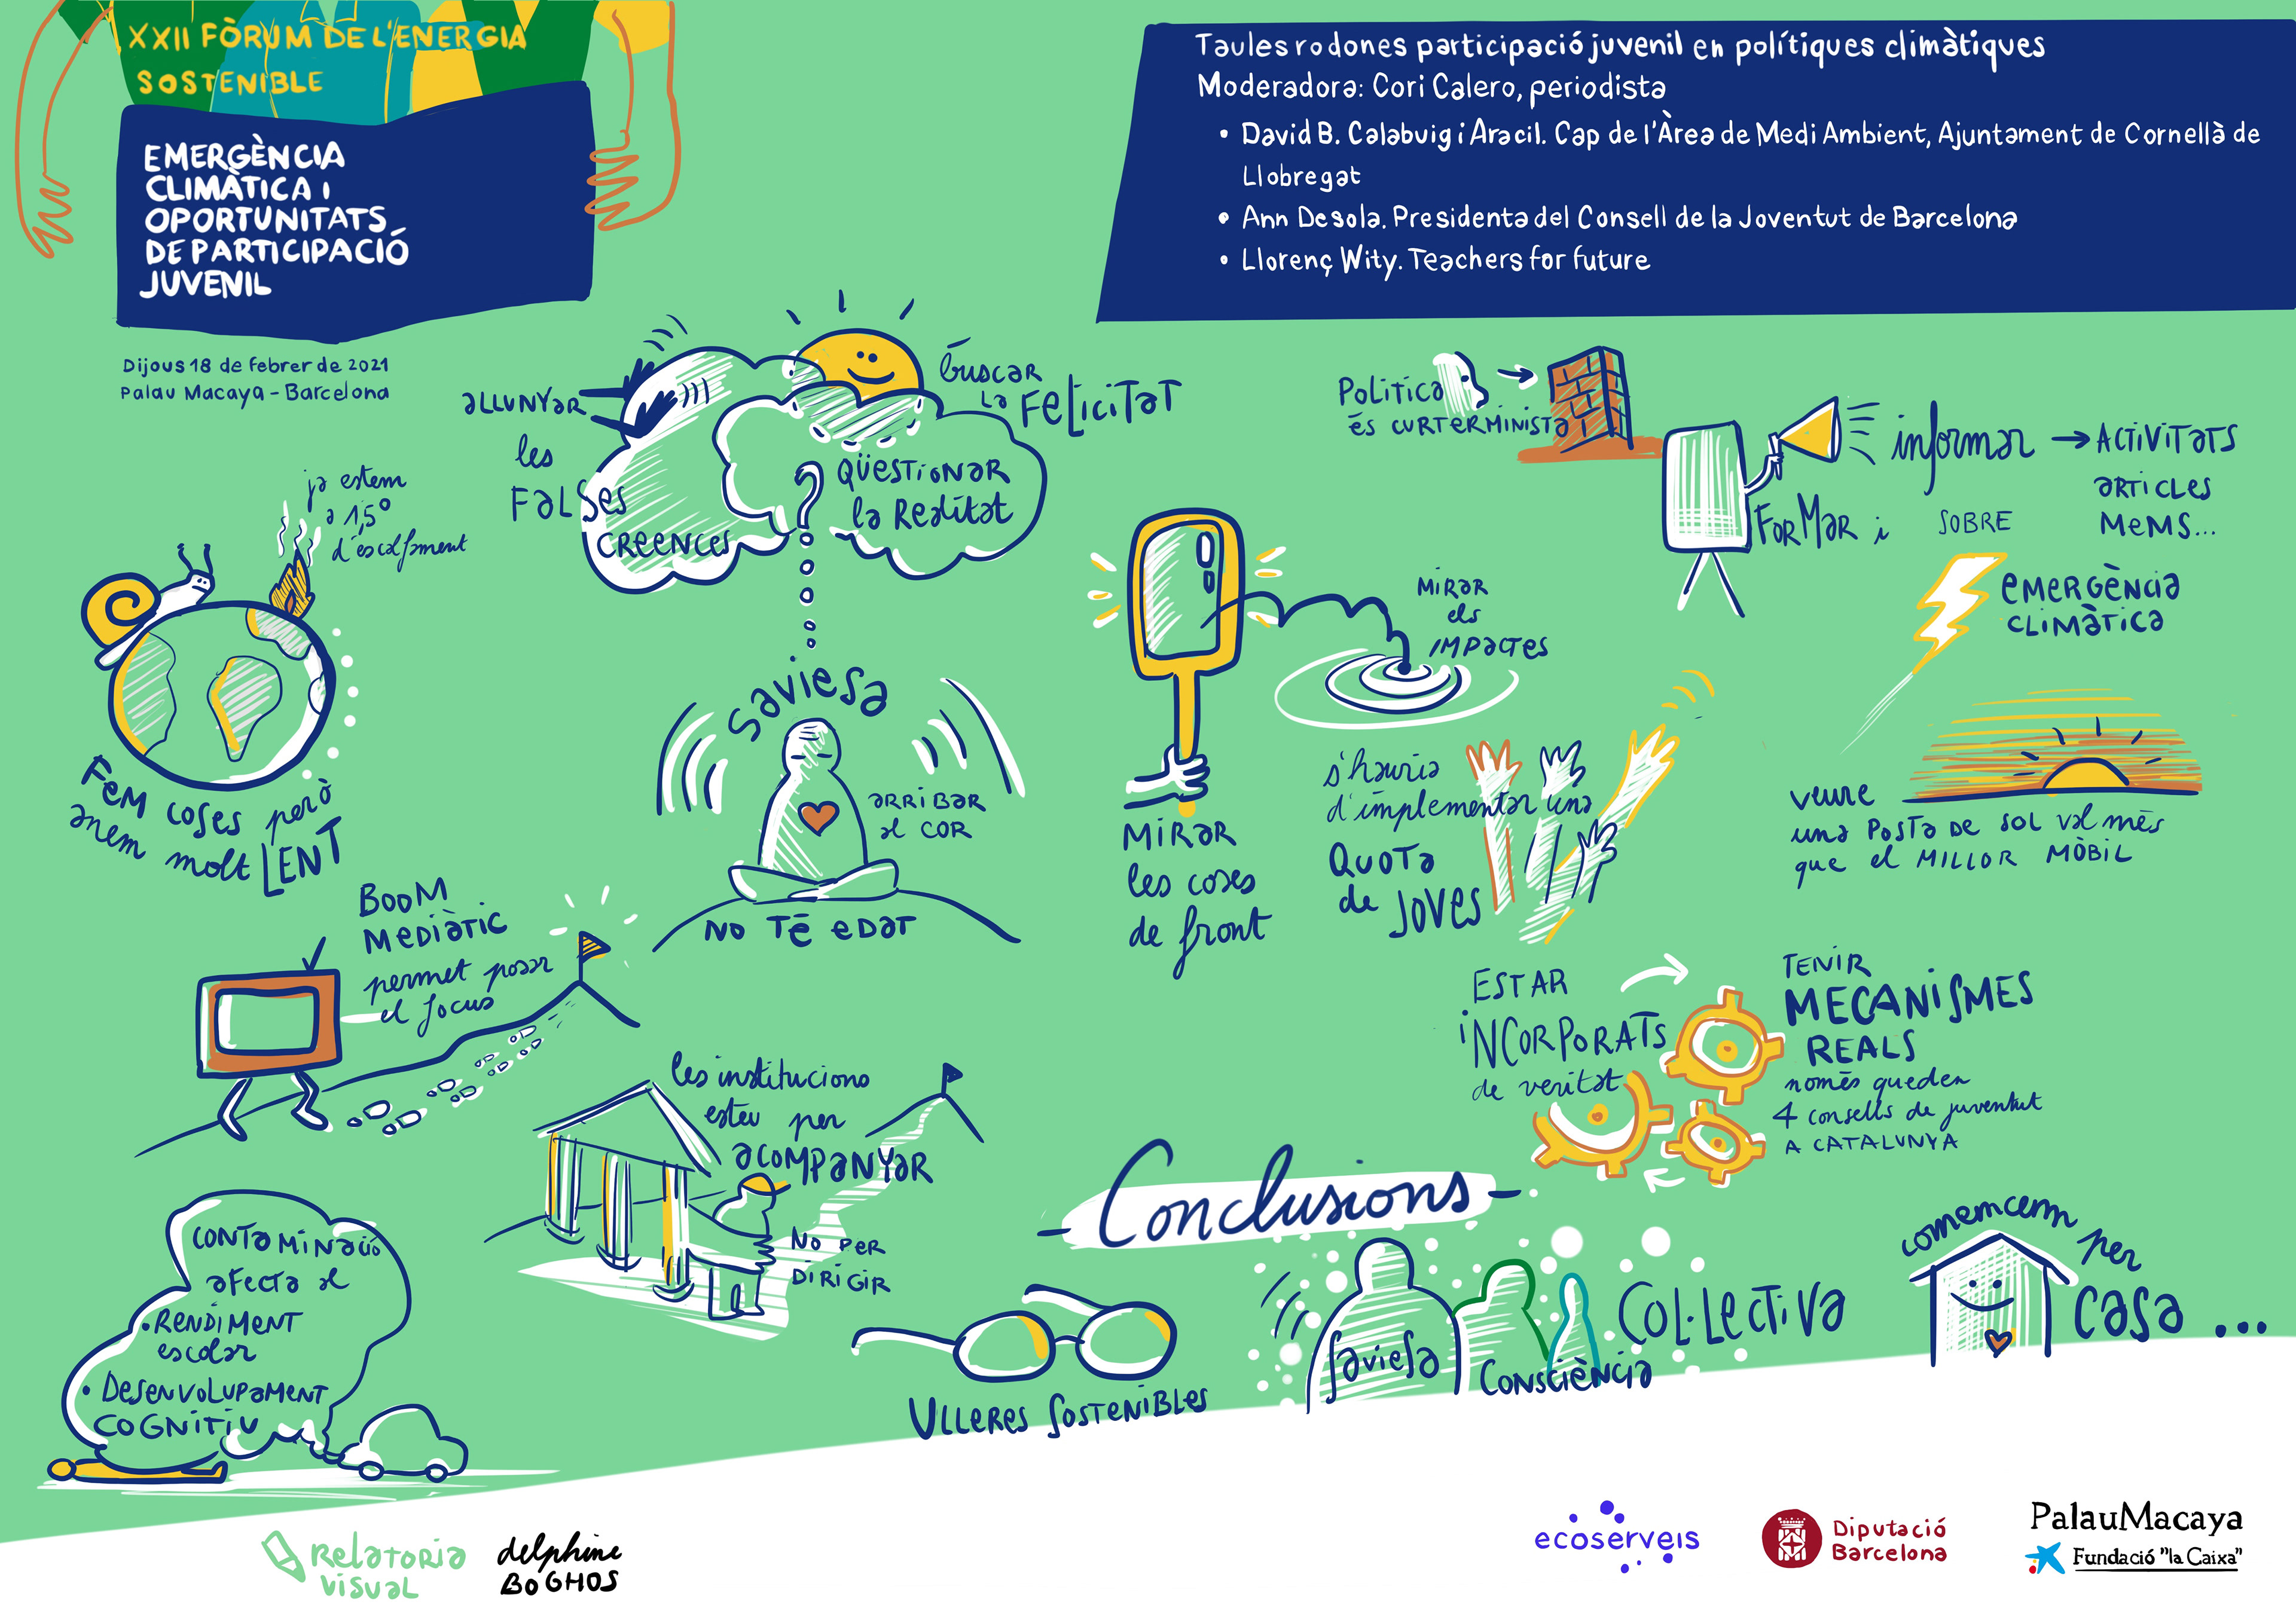 XXII FÒRUM DE L'ENERGIA
SOSTENIBLE
EMERGÈNCIA
CLIMÀTICA I
OPORTUNITATS
DE PARTICIPACIÓ
JUVENIL
Dijous 18 de febrer de 2021
Palau Macaya - Barcelona
Taules rodones participació juvenil en polítiques climàtiques
Moderadora: Cori Calero, periodista
• David B. Calabuig i Aracil. Cap de l'Àrea de Medi Ambient, Ajuntament de Cornellà de
Llobregat
• Ann Desola. Presidenta del Consell de la Joventut de Barcelona
• Llorenç Wity. Teachers for future
ja estem
a 1,5º
d'escalfament
Fem coses però
anem molt LENT
allunyar
les
FALSES
CREENCES
buscar
la FELICITAT
QÜESTIONAR
la Realitat
saviesa
ARRIBAR
al COR
NO TÉ EDAT
MIRAR
les coses
de front
MIRAR
els
IMPACTES
Política
és CURTERMINISTA
FORMAR i
informar → ACTIVITATS
ARTICLES
MEMS...
SOBRE
EMERGÈNCIA
CLIMÀTICA
s'hauria
d'implementar una
QUOTA
de JOVES
veure
una POSTA DE SOL val més
que el MILLOR MÒBIL
BOOM
MEDIÀTIC
permet posar
el focus
les institucions
esteu per
ACOMPANYAR
NO PER
DIRIGIR
ESTAR
INCORPORATS
de veritat
TENIR
MECANISMES
REALS
només queden
4 consells de juventut
A CATALUNYA
CONTAMINACIÓ
AFECTA al
• RENDIMENT
escolar
• DESENVOLUPAMENT
COGNITIU
- Conclusions -
ULLERES SOSTENIBLES
Saviesa
CONSCIÈNCIA
COL·LECTIVA
comencem per
CASA ...
RELATORIA
VISUAL
delphine
BOGHOS
ecoserveis
Diputació
Barcelona
PalauMacaya
Fundació "la Caixa"